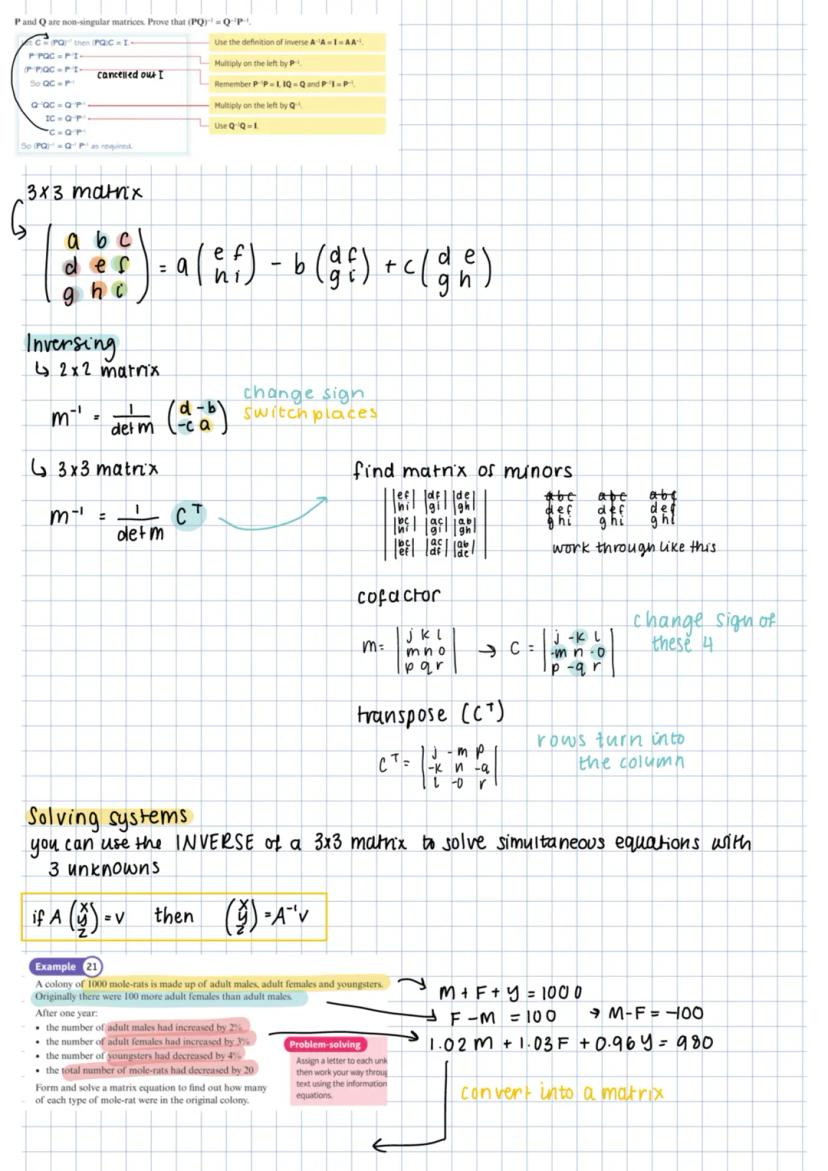 P and Q are non-singular matrices. Prove that (PQ)⁻¹ = Q⁻¹P⁻¹.
Let C = (PQ)⁻¹ then (PQ)C = I
Use the definition of inverse A⁻¹A = I = AA⁻¹.
P⁻¹PQC = P⁻¹I
Multiply on the left by P⁻¹.
(P⁻¹P)QC = P⁻¹I
cancelled out I
Remember P⁻¹P = I, IQ = Q and P⁻¹I = P⁻¹.
So QC = P⁻¹
Q⁻¹QC = Q⁻¹P⁻¹
Multiply on the left by Q⁻¹.
IC = Q⁻¹P⁻¹
Use Q⁻¹Q = I.
C = Q⁻¹P⁻¹
So (PQ)⁻¹ = Q⁻¹ P⁻¹ as required.
3x3 matrix
a b c
d e f = a ( e f ) - b ( d f ) + c ( d e )
g h i h i g i g h
Inversing
↳ 2x2 matrix
change sign
switch places
m⁻¹ = 1 ( d -b )
det m -c a
↳ 3x3 matrix
m⁻¹ = 1 Cᵀ
det m
find matrix of minors
|ef| |df| |de|
|hi| |gi| |gh|
|bc| |ac| |ab|
|hi| |gi| |gh|
|bc| |ac| |ab|
|ef| |df| |de|
abc abc abc
def def def
ghi ghi ghi
work through like this
cofactor
m= | j k l | → C = | j -k l |
m n o -m n -o
p q r p -q r
change sign of
these 4
transpose (Cᵀ)
Cᵀ = | j -m p |
-k n -q
l -o r
rows turn into
the column
Solving systems
you can use the INVERSE of a 3x3 matrix to solve simultaneous equations with
3 unknowns
if A (x y z) = v then (x y z) = A⁻¹v
Example 21
A colony of 1000 mole-rats is made up of adult males, adult females and youngsters.
Originally there were 100 more adult females than adult males.
After one year:
• the number of adult males had increased by 2%
• the number of adult females had increased by 3%
• the number of youngsters had decreased by 4%
• the total number of mole-rats had decreased by 20
Form and solve a matrix equation to find out how many
of each type of mole-rat were in the original colony.
Problem-solving
Assign a letter to each unk
then work your way throug
text using the information
equations.
M + F + y = 1000
F - M = 100 → M - F = -100
1.02 M + 1.03 F + 0.96 y = 980
convert into a matrix